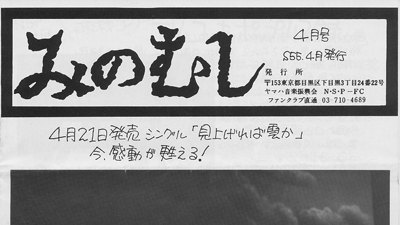 みのむし
4月号
S55.4月発行
発行所
〒153東京都目黒区下目黒3丁目24番22号
ヤマハ音楽振興会 N・S・P-FC
ファンクラブ直通 03-710-4689
4月21日発売 シングル「見上げれば雲か」
今、感動が甦える!